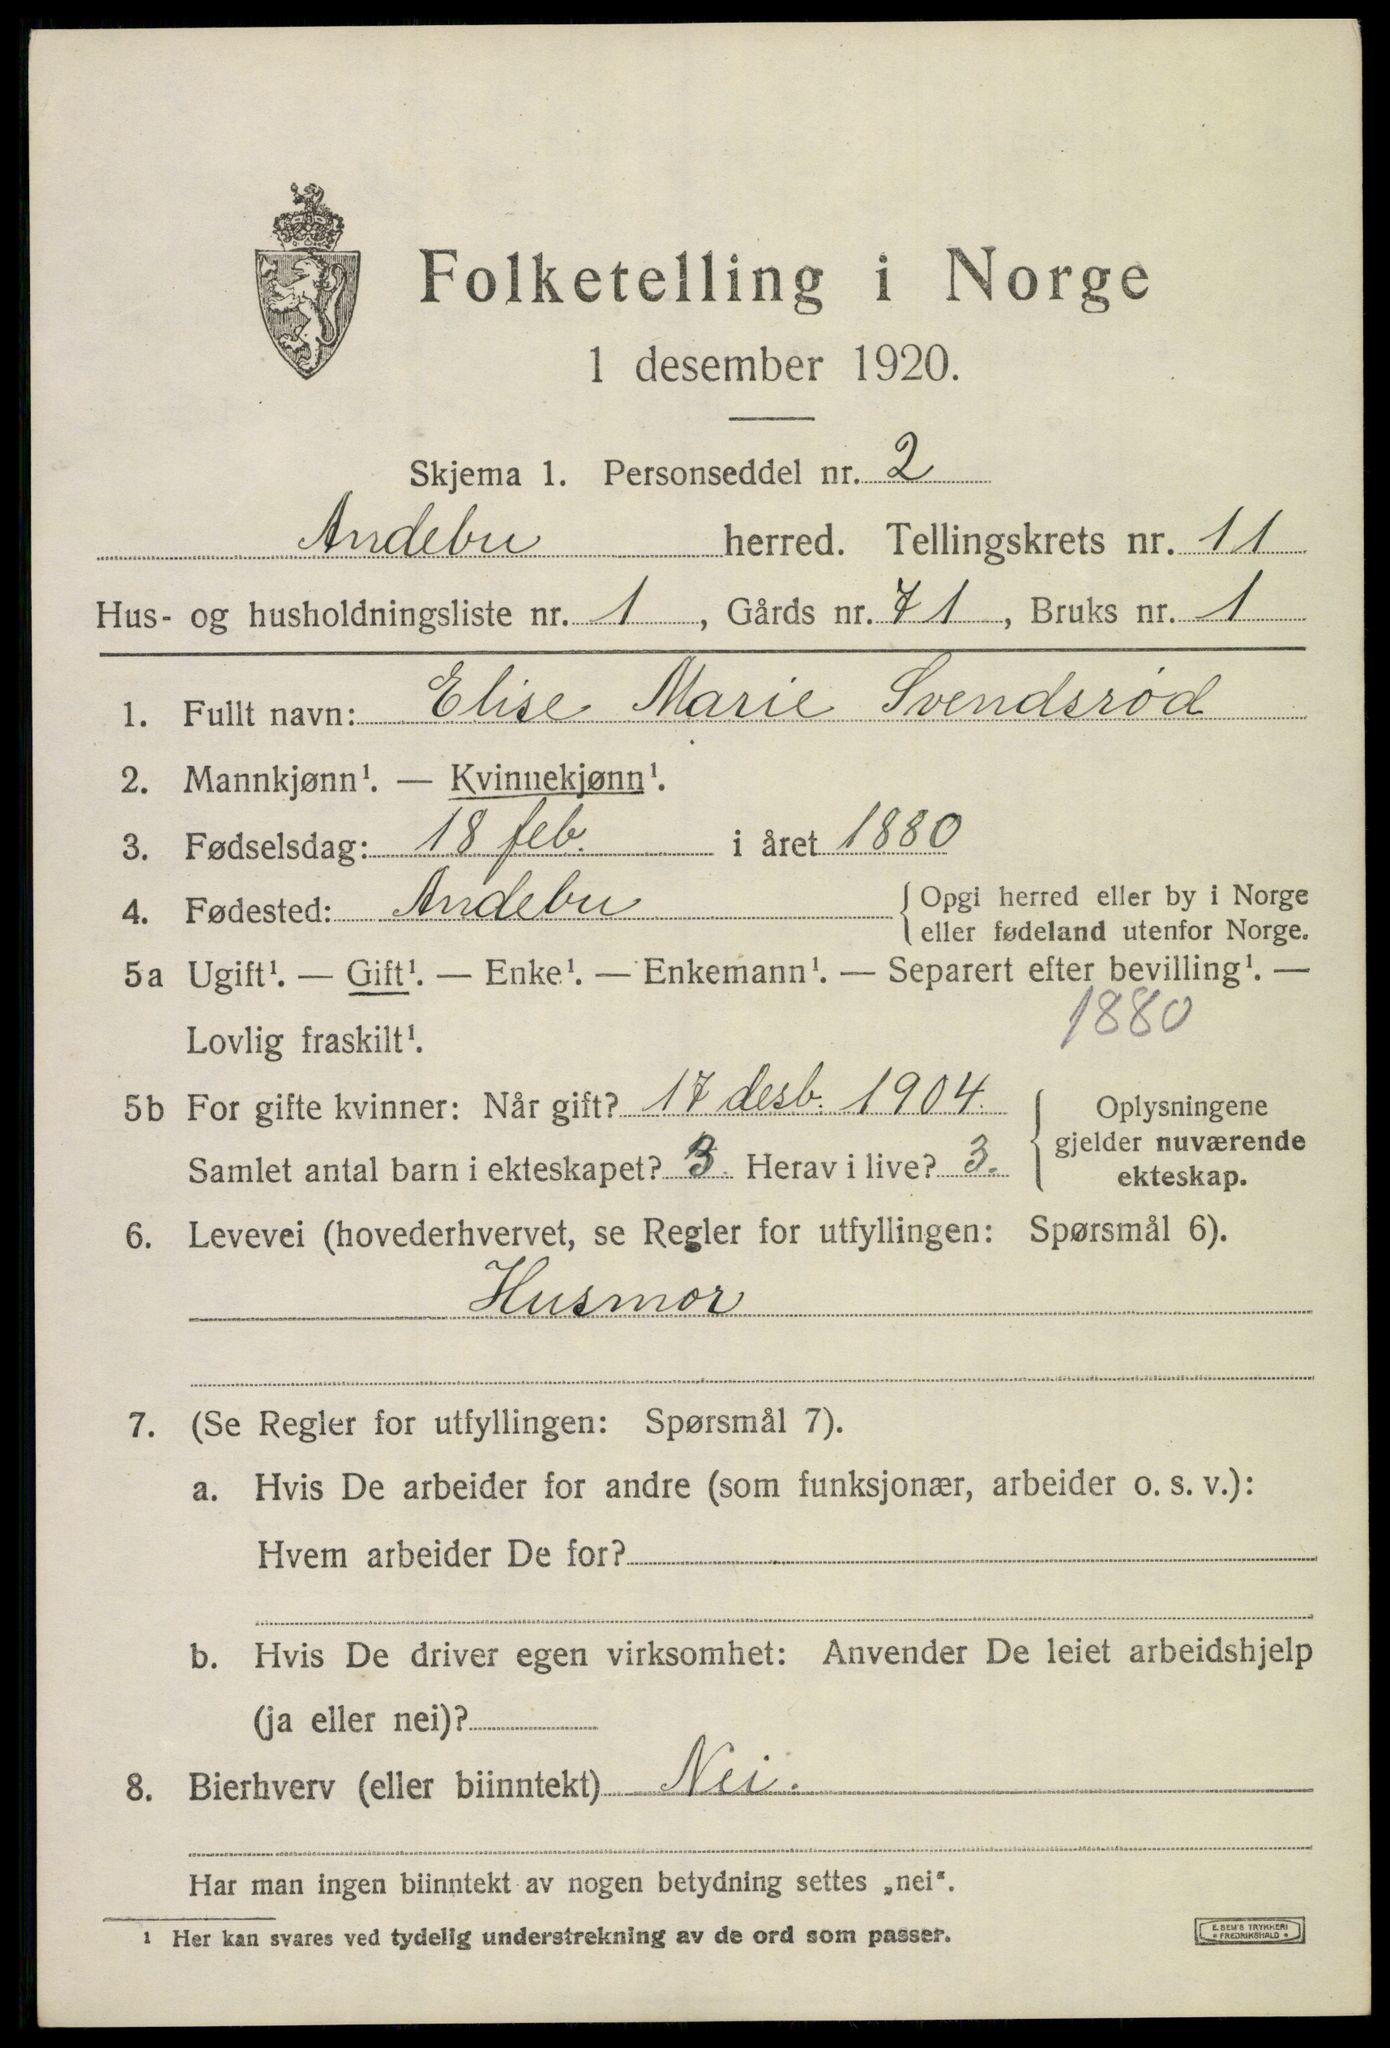 Folketelling i Norge
1 desember 1920.
Skjema 1. Personseddel nr. 2
Andebu herred. Tellingskrets nr. 11
Hus- og husholdningsliste nr. 1, Gårds nr. 71, Bruks nr. 1
1. Fullt navn: Elise Marie Svendsrød
2. Mannkjønn¹. — Kvinnekjønn¹.
3. Fødselsdag: 18 feb. i året 1880
4. Fødested: Andebu { Opgi herred eller by i Norge
eller fødeland utenfor Norge.
5a Ugift¹. — Gift¹. — Enke¹. — Enkemann¹. — Separert efter bevilling¹. —
Lovlig fraskilt¹. 1880
5b For gifte kvinner: Når gift? 17 desb. 1904. { Oplysningene
gjelder nuværende
Samlet antal barn i ekteskapet? 3. Herav i live? 3. ekteskap.
6. Levevei (hovederhvervet, se Regler for utfyllingen: Spørsmål 6).
Husmor
7. (Se Regler for utfyllingen: Spørsmål 7).
a. Hvis De arbeider for andre (som funksjonær, arbeider o. s. v.):
Hvem arbeider De for?
b. Hvis De driver egen virksomhet: Anvender De leiet arbeidshjelp
(ja eller nei)?
8. Bierhverv (eller biinntekt) Nei.
Har man ingen biinntekt av nogen betydning settes „nei".
¹ Her kan svares ved tydelig understrekning av de ord som passer.
E. SEM'S TRYKKERI
* FREDRIKSHALD *